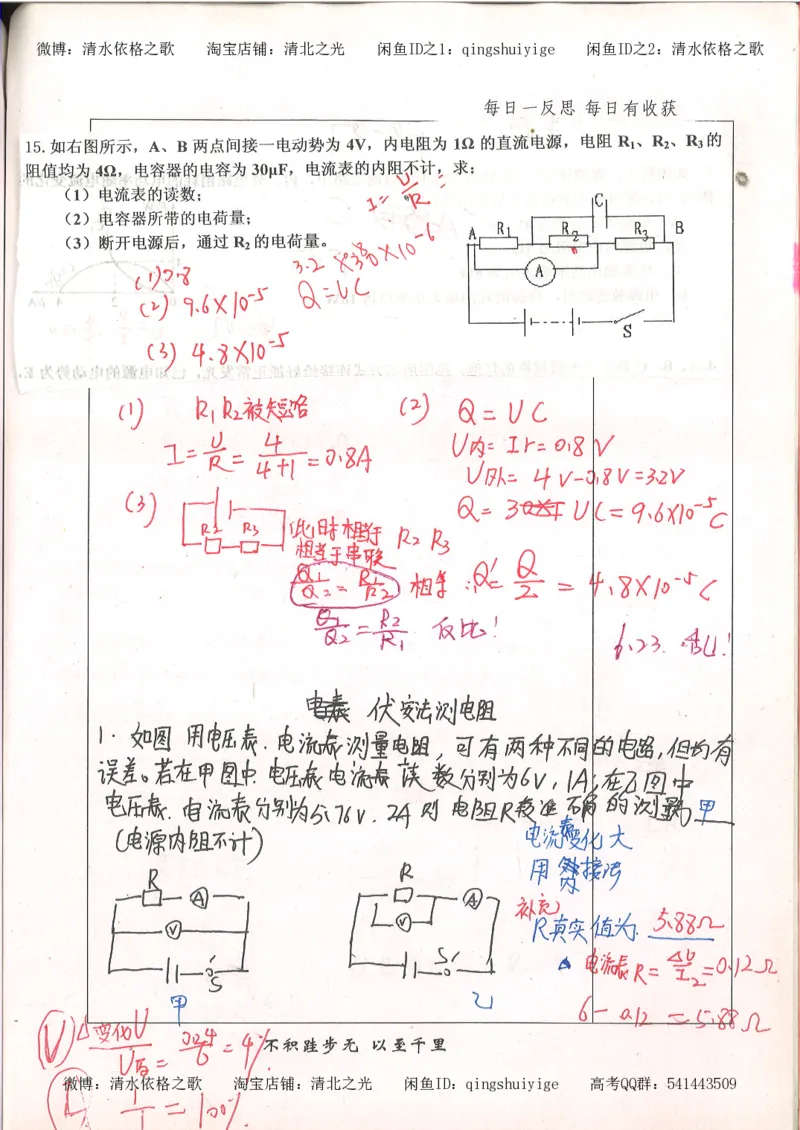 微博：清水依格之歌 淘宝店铺：清北之光 闲鱼ID之1：qingshuiyige 闲鱼ID之2：清水依格之歌
每日一反思 每日有收获
15. 如右图所示，A、B 两点间接一电动势为 4V，内电阻为 1Ω 的直流电源，电阻 R₁、R₂、R₃的
阻值均为 4Ω，电容器的电容为 30μF，电流表的内阻不计，求：
（1）电流表的读数；
（2）电容器所带的电荷量；
（3）断开电源后，通过 R₂ 的电荷量。
I=U/R=
C
A R₁ R₂ R₃ B
A
S
3.2×30×10⁻⁶
Q=UC
(1) 0.8
(2) 9.6×10⁻⁵
(3) 4.8×10⁻⁵
(1) R₁R₂被短路
I=U/R=4/(4+1)=0.8A
(2) Q=UC
U内=Ir=0.8V
U外=4V-0.8V=3.2V
Q=UC=9.6×10⁻⁵C
(3)
R₂ R₃
此时相当于
相当于串联 R₂ R₃
Q₁/Q₂=R₁/R₂ 相等 ∴Q′=Q/2=4.8×10⁻⁵C
Q₁/Q₂=R₂/R₁ 反比！
6.23.
电表 伏安法测电阻
1. 如图 用电压表、电流表测量电阻，可有两种不同的电路，但均有
误差。若在甲图中 电压表电流表读数分别为6V，1A；在乙图中
电压表、电流表分别为5.76V、2A 则 电阻R较准确的测量 甲
（电源内阻不计）
电流表变化大
用内接法
补充
R真实值为 5.88Ω
R A V S
甲
R A V S
乙
电流表R=ΔU/I₂=0.12Ω
6-0.12=5.88Ω
V 变化U/U原=0.24/6=4%
1/1=100%
不积跬步无 以至千里
微博：清水依格之歌 淘宝店铺：清北之光 闲鱼ID：qingshuiyige 高考QQ群：541443509